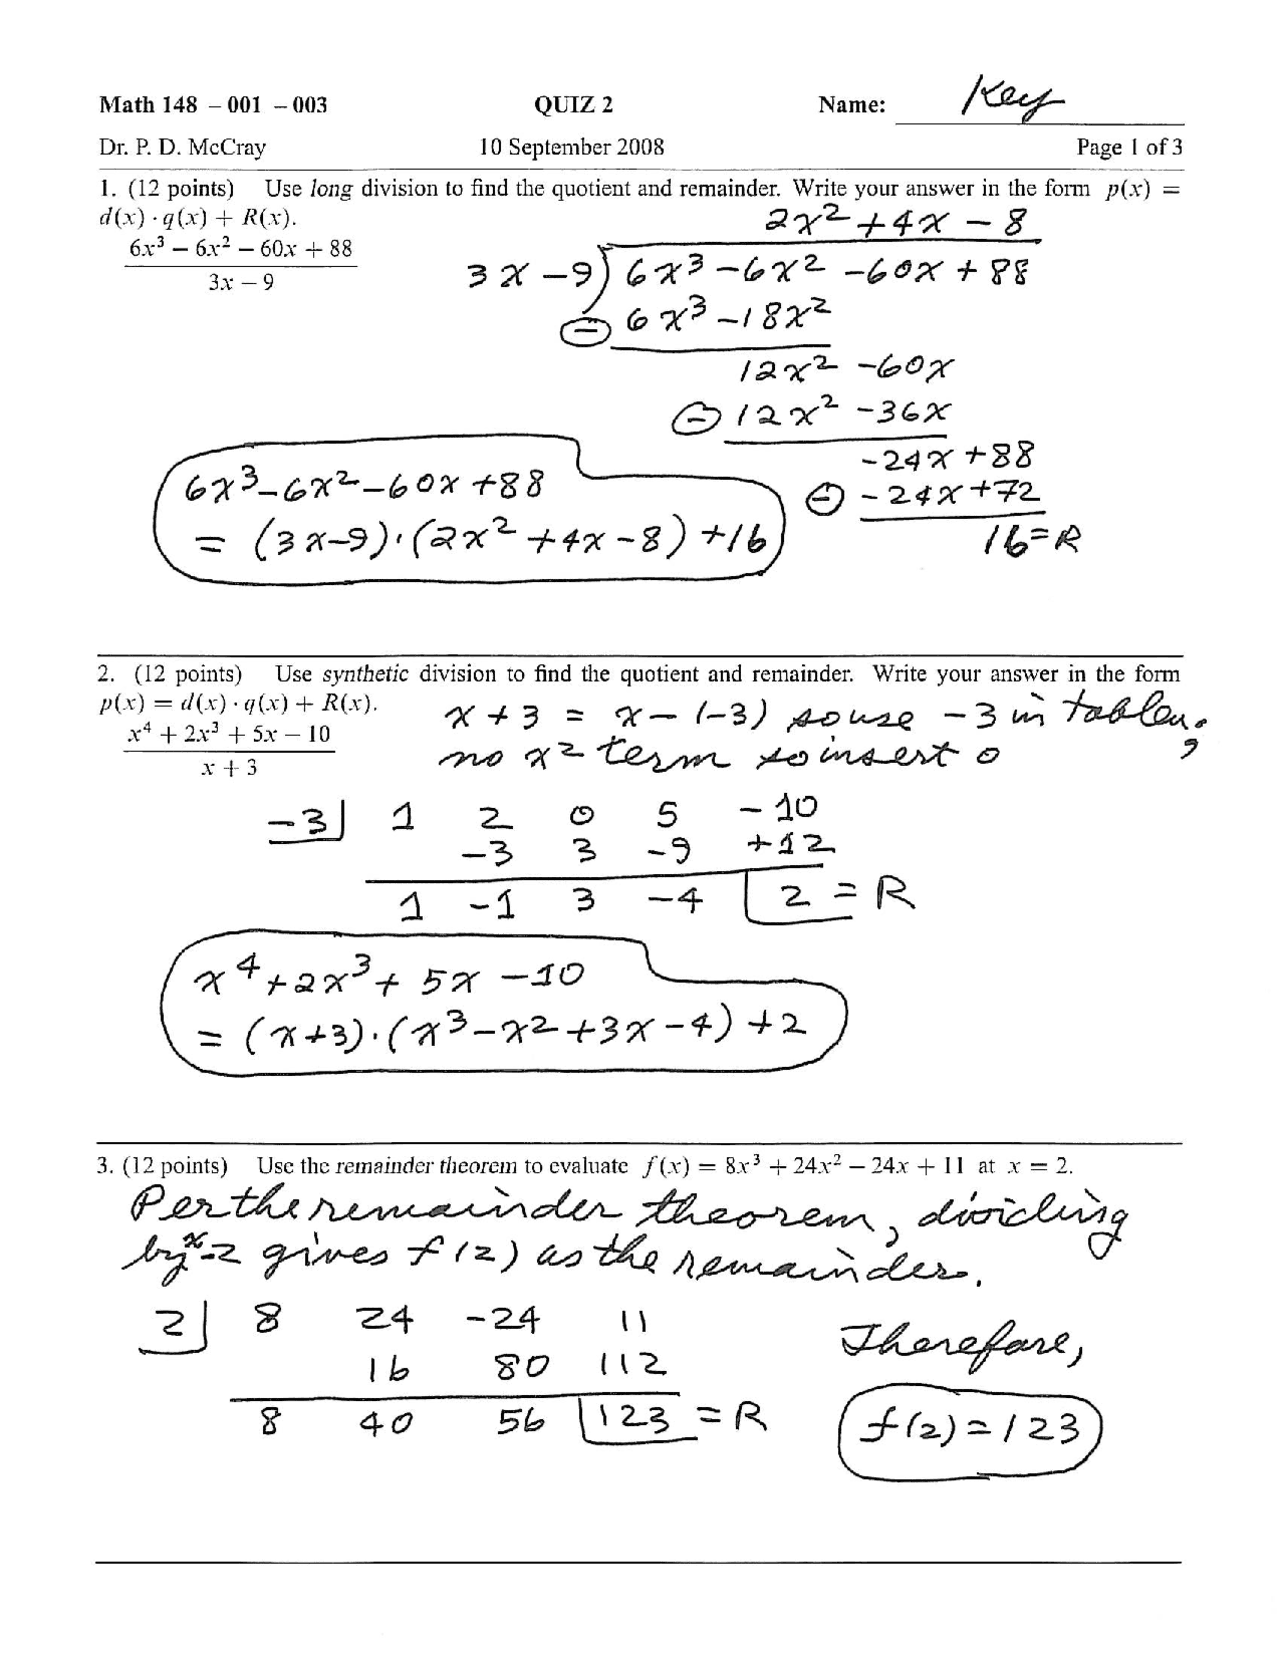 Math 148 – 001 – 003 QUIZ 2 Name: Key
Dr. P. D. McCray 10 September 2008 Page 1 of 3
1. (12 points) Use long division to find the quotient and remainder. Write your answer in the form p(x) =
d(x) · q(x) + R(x).
6x³ − 6x² − 60x + 88
3x − 9
2x² + 4x − 8
3x − 9) 6x³ − 6x² − 60x + 88
⊖ 6x³ − 18x²
12x² − 60x
⊖ 12x² − 36x
−24x + 88
⊖ −24x + 72
16 = R
6x³ − 6x² − 60x + 88
= (3x−9)·(2x² + 4x − 8) + 16
2. (12 points) Use synthetic division to find the quotient and remainder. Write your answer in the form
p(x) = d(x) · q(x) + R(x).
x⁴ + 2x³ + 5x − 10
x + 3
x + 3 = x − (−3) so use −3 in
no x² term so insert 0
−3| 1 2 0 5 −10
−3 3 −9 +12
1 −1 3 −4 |2 = R
x⁴ + 2x³ + 5x − 10
= (x+3)·(x³ − x² + 3x − 4) + 2
3. (12 points) Use the remainder theorem to evaluate f(x) = 8x³ + 24x² − 24x + 11 at x = 2.
Per the remainder theorem, dividing
by x−2 gives f(2) as the remainder.
2| 8 24 −24 11
16 80 112
8 40 56 |123 = R
Therefore,
f(2) = 123